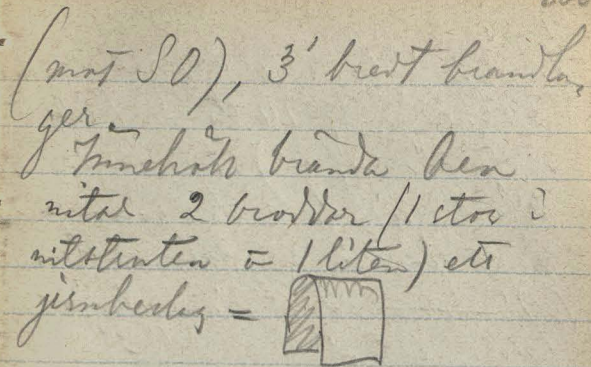 (mot SO), 3' bredt brandla-
ger.
Innehöll brända ben
2 broddar (1 stor i
1 liten) ett
jernbeslag =